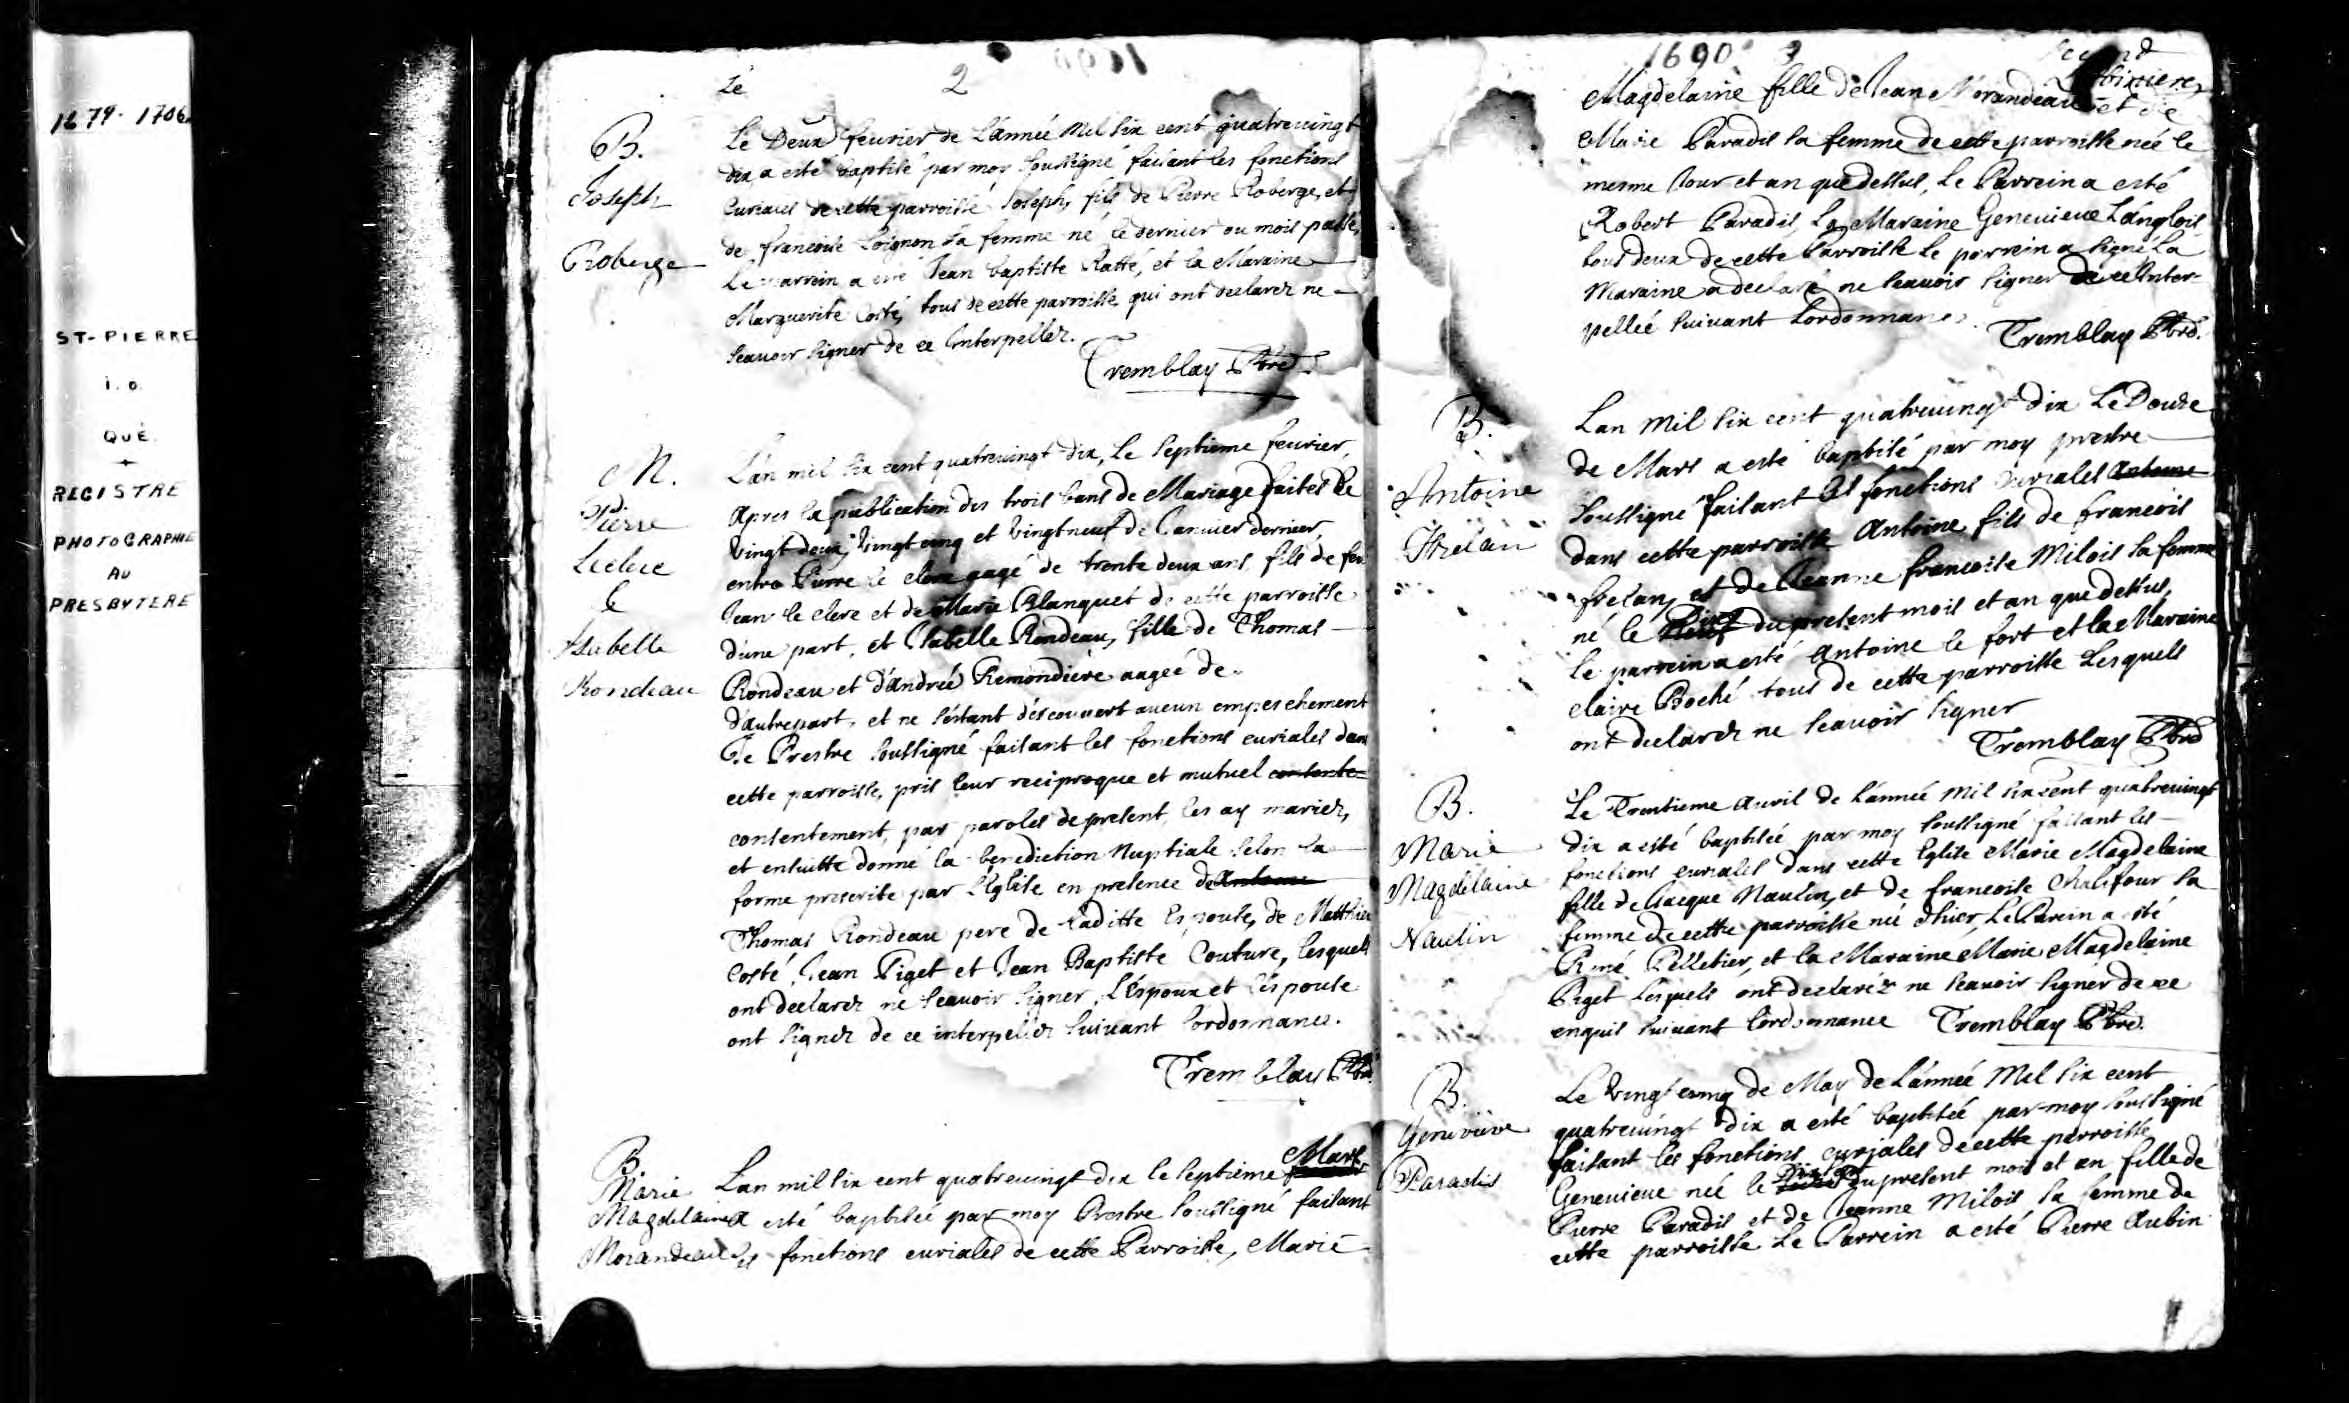 1679-1706
ST-PIERRE
i.o.
QUÉ.
REGISTRE
PHOTOGRAPHIÉ
AU
PRESBYTERE
Le
2
B.
Joseph
Roberge
Le Deux feuvrier de L'année Mil six cent quatrevingt
dix, a esté baptisé par moy soussigné faisant les fonctions
Curiales de cette parroisse Joseph, fils de Pierre Roberge, et
de francoise Loignon sa femme né le dernier du mois passé,
Le parrein a esté Jean baptiste Ratté, et la Maraine
Marguerite Costé, tous de cette parroisse, qui ont declarez ne
scauoir signer de ce Interpellez.
Tremblay Pbre.
M.
Pierre
Leclerc
&
Isabelle
Rondeau
L'an mil six cent quatrevingt dix, Le septieme feurier,
Apres la publication des trois bans de Mariage faites le
vingt deux, vingt cinq et vingt neuf de Januier dernier,
entre Pierre le clerc aagé de trente deux ans, fils de feu
Jean le clerc et de Marie Blanquet de cette parroisse
d'une part, et Isabelle Rondeau, fille de Thomas
Rondeau et d'andrée Remondiere aagée de
d'autre part, et ne s'estant découuert aucun empeschement
Je Prestre soussigné faisant les fonctions curiales dans
cette parroisse, pris leur reciproque et mutuel contente-
consentement, par paroles de present, les ay mariez,
et ensuitte donné la benediction Nuptiale selon la
forme prescrite par L'Eglise en presence de Antoine
Thomas Rondeau pere de laditte Espouse, de Matthieu
Costé, Jean Piget et Jean Baptiste Couture, lesquels
ont declarez ne scauoir signer, L'Espoux et L'espouse
ont signez de ce interpellez suiuant L'ordonnance.
Tremblay Pbre
B
Marie
Magdelaine
Morandeau
Lan mil six cent quatrevingt dix le septieme Mars
a esté baptisée par moy Prestre soussigné faisant
les fonctions curiales de cette Parroisse, Marie
1690 3
second
Magdelaine fille de Jean Morandeau et de
Marie Paradis sa femme de cette parroisse née le
mesme Jour et an que dessus, Le Parrein a esté
Robert Paradis, La Maraine Geneuieue Langlois
tous deux de cette Parroisse Le parrein a signé La
Maraine a declaré ne scauoir signer de ce Inter-
pellée suiuant Lordonnance.
Tremblay Pbre.
B.
Antoine
Frelan
Lan Mil six cent quatrevingt dix Le Douze
de Mars a esté baptisé par moy prestre
soussigné faisant les fonctions Curiales Antoine
dans cette parroisse Antoine fils de francois
frelan, et de Jeanne francoise Milois sa femme
né le du present mois et an que dessus,
le parrein a esté Antoine le fort et la Maraine
claire Boché tous de cette parroisse Lesquels
ont declarez ne scauoir signer
Tremblay Pbre
B.
Marie
Magdelaine
Naulin
Le Trentieme Auril de L'année Mil six cent quatrevingt
dix a esté baptisée par moy soussigné faisant les
fonctions curiales dans cette Eglise Marie Magdelaine
fille de Jacque Naulin, et de francoise Chalifour sa
femme de cette parroisse née d'hier, Le Parein a esté
René Pelletier, et la Maraine Marie Magdelaine
Piget Lesquels ont declaréz ne scauoir signer de ce
enquis suiuant Lordonnance Tremblay Pbre.
B.
Geneviève
Paradis
Le vingt cinq de May de L'année Mil six cent
quatrevingt dix a esté baptisée par moy soussigné
faisant les fonctions curiales de cette parroisse
Geneuieue née le du present mois et an fille de
Pierre Paradis et de Jeanne Milois sa femme de
cette parroisse Le Parrein a esté Pierre Aubin